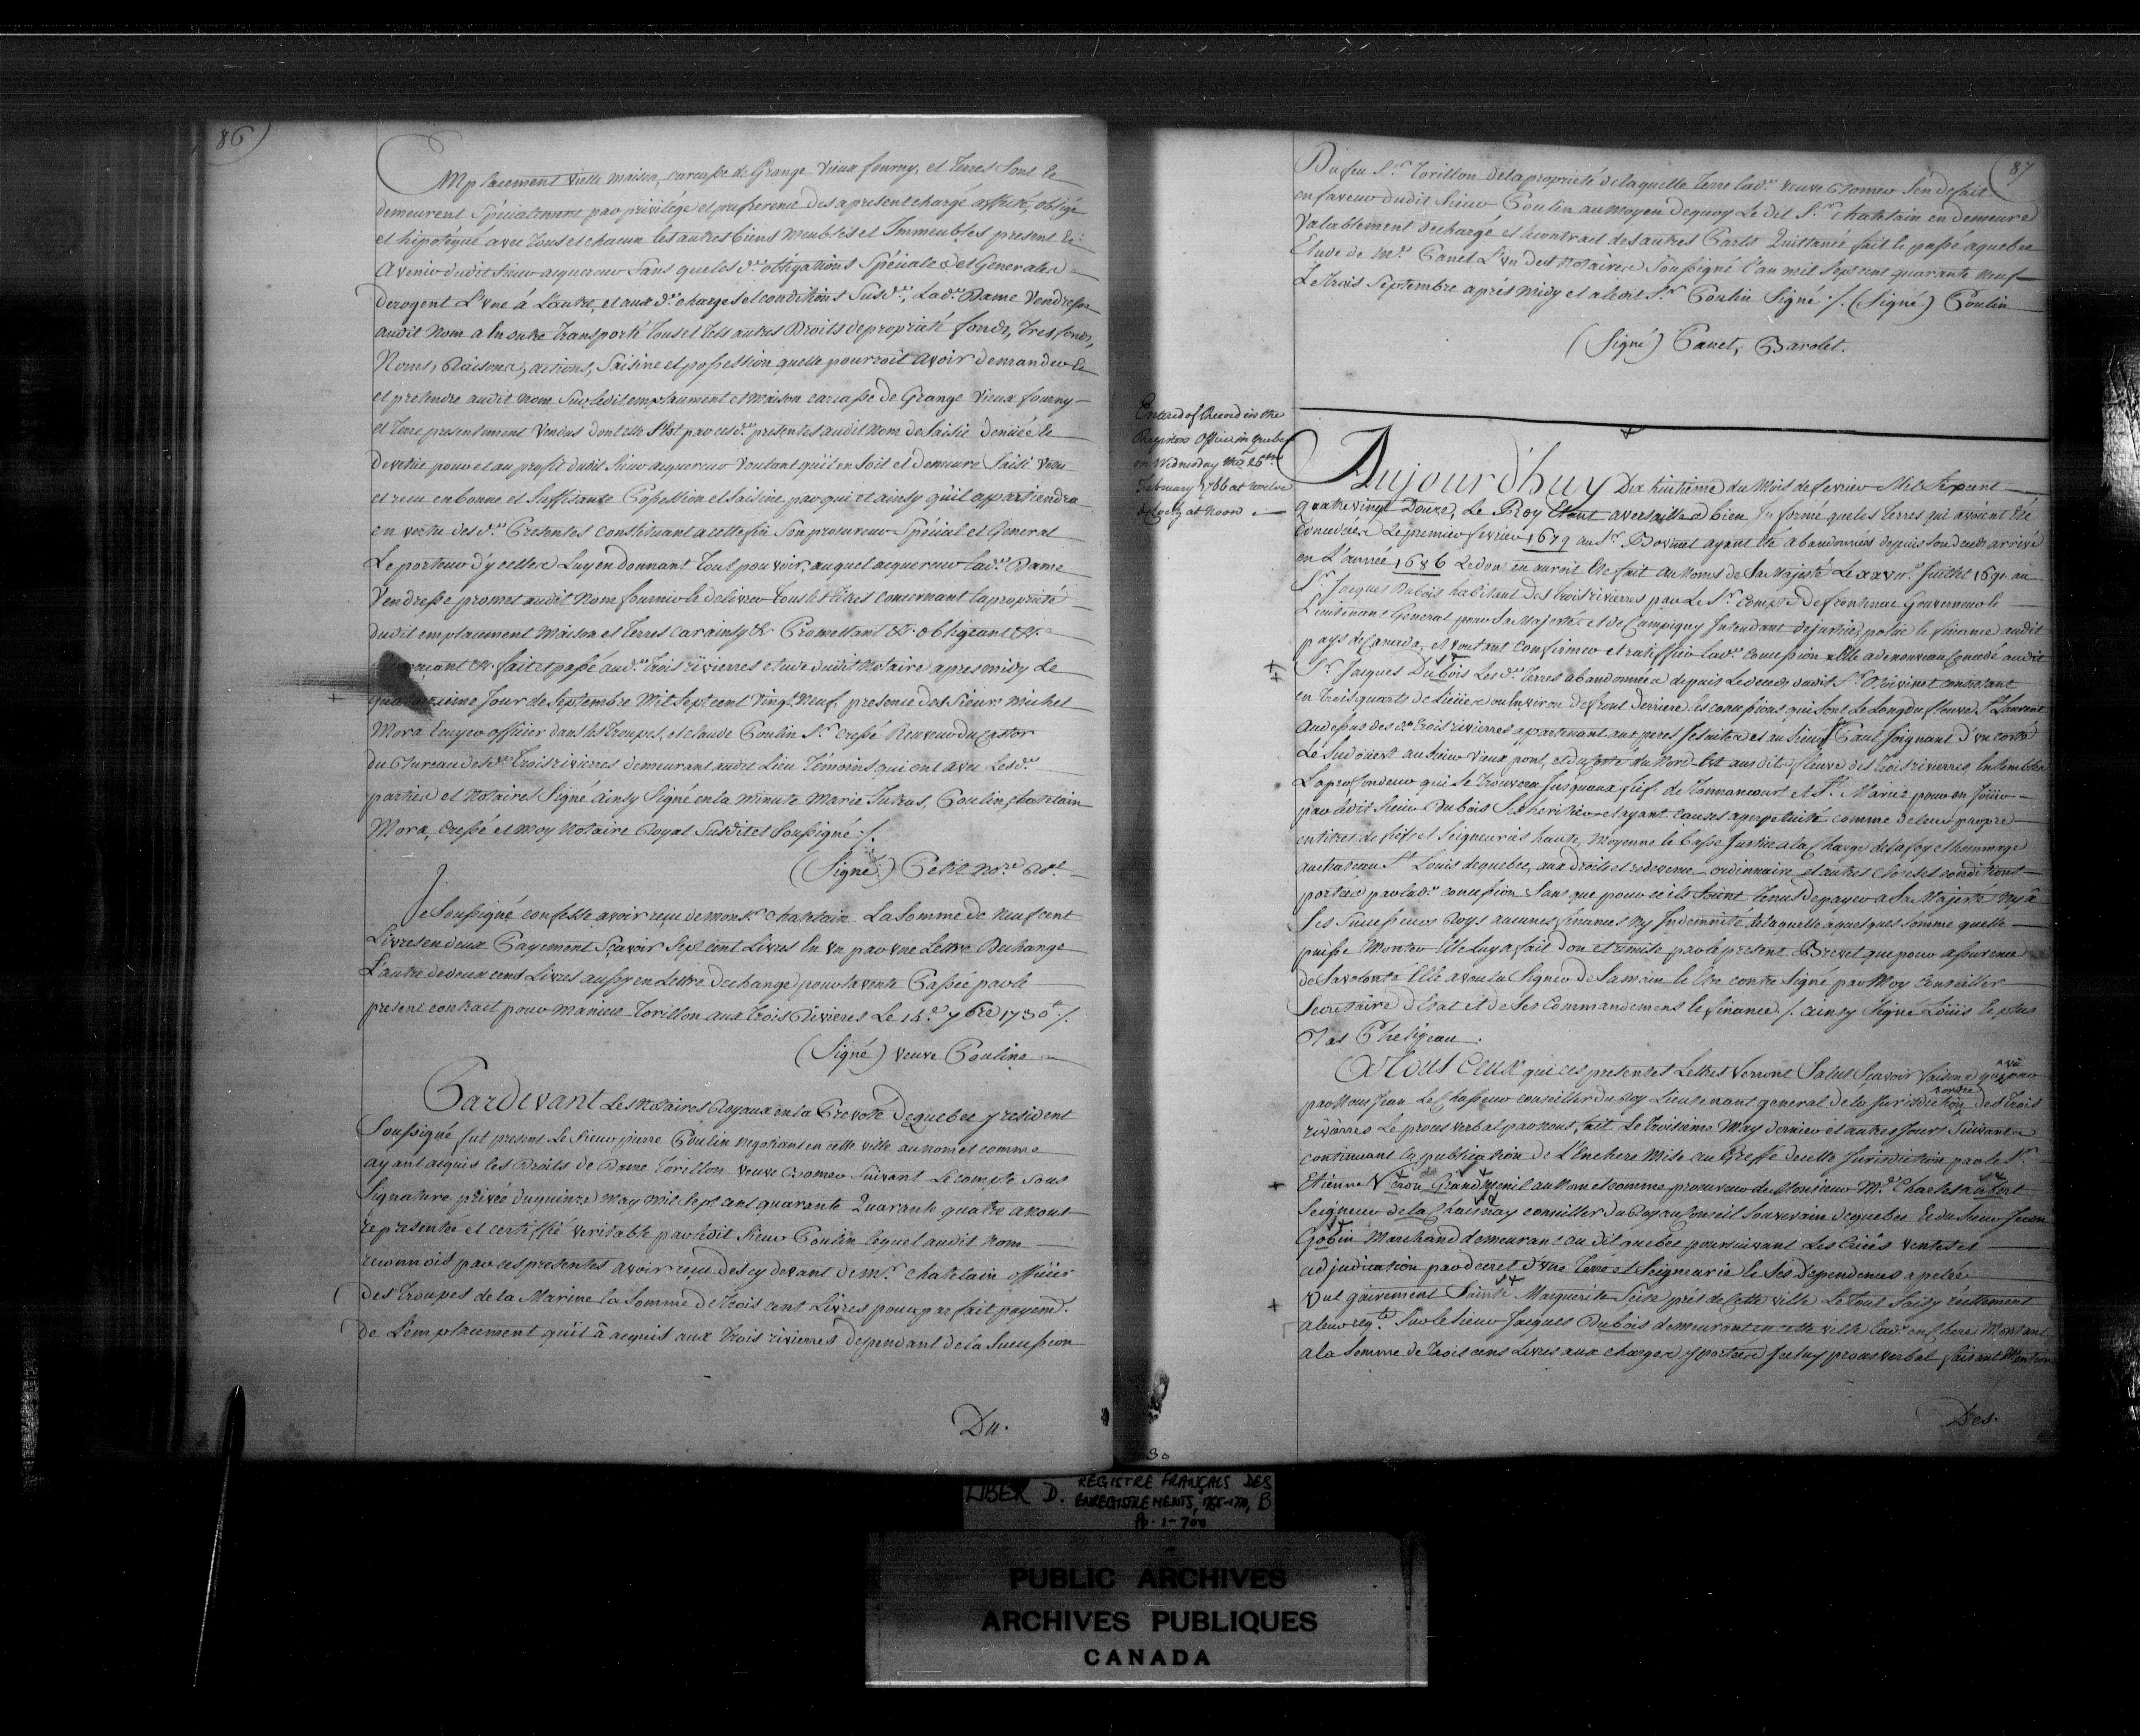 86
Emplacement vielle maison, carcasse de Grange vieux fourny, et terres sont le
demeurent Spécialement par privilége et preference des apresent chargé affecté, obligé
et hipotéqué avec Tous et chacun les autres biens meubles et Immeubles present et
Avenir dudit Sieur acquereur Sans que les d.es obligations Spéciale et Generale
Derogent L'une à L'autre, et aux d.es charges et conditions Susd.es, Lad.e Dame Venderesse
audit Nom a en outre Transporté Tous et tels autres Droits de proprieté fonds, Tresfonds,
Noms, Raisons, actions, Saisine et possession quelle pourroit avoir demander le
et pretendre audit Nom Sur ledit emplacement et Maison carcasse de Grange Vieux fourny
et Terre presentement Vendus dont elle S'est par ces d.es presentes audit Nom desaisie denuée le
devetue pour et au profit dudit Sieur acquereur voulant qu'il en Soit et demeure Saisi vetu
et recu en bonne et Suffisante Possession et Saisine par qui et ainsy qu'il appartiendra
en vertu des d.es Presentes constituant a cette fin Son procureur Spécial et General
Le porteur d'ycelles Luy en donnant Tout pouvoir, auquel acquereur lad.e Dame
Venderesse promet audit Nom fournir le delivrer Tous les titres concernant la proprieté
dudit emplacement Maison et Terres car ainsy &c Promettant &c obligeant &c
Renonçant &c. fait et passé aud.es Trois rivierres etude dudit Notaire apres midy Le
quatorzieme Jour de Septembre Mil Sept cent Vingt Neuf, presence des Sieurs michel
Mora Ecuyer officier dans les Troupes, et claude Poulin S.r Cressé Receveur du Castor
du Bureau des d.es Trois rivierres demeurant audit Lieu Témoins qui ont avec Les d.es
parties et Notaires Signé ainsy Signé en la minute Marie Jutras, Poulin, chatelain
Mora, Cressé et Moy Notaire Royal Susdit et Soussigné ./.
(Signé) Petit No.re R.al
Je Soussigné confesse avoir reçu de Mons.r Chatelain La Somme de Neuf cent
Livres en deux Payement Sçavoir Sept cent Livres En un par une Lettre Dechange
L'autre de deux cens Livres aussy en Lettre de change pour la vente Passée par le
present contract pour Manieu Torillon aux trois Rivieres Le 14.e 7bre 1730 ./.
(Signé) Veuve Pouline
Pardevant Les Notaires Royaux en la Prevoté de quebec y resident
Soussigné fut present Le Sieur pierre Poulin negotiant en cette ville au nom et comme
ayant acquis les Droits de Dame Torillon veuve Bromeu Suivant Le compte Sous
Signature privée du quinze may mil Sept cent quarante Quarante quatre anous
representé et certiffié veritable par ledit Sieur Poulin lequel audit nom
reconnois par ces presentes avoir reçu des cy devant de M.r Chatelain officier
des troupes de la Marine la Somme de trois cent Livres pour parfait payem.t
de L'emplacement qu'il à acquis aux trois rivierres dependant de la Succession
Du.
87
Du feu S.r Torillon de la proprieté de laquelle Terre lad.e veuve Bromeu S'en defait
en faveur dudit Sieur Poulin au moyen de quoy Le dit S.r Chatelain en demeure
Valablement dechargé et le contract des autres Parts Quittancé fait le passé a quebec
Etude de M.e Panet L'un des Notaires Soussigné l'an mil Sept cent quarante neuf
Le trois Septembre aprés Midy et a ledit S.r Poulin Signé ./. (Signé) Poulin
(Signé) Panet, Barolet.
Entered of Record in the
Registers Office in Quebec
on Wednesday the 26th
February 1766 at twelve
o'Clock at Noon
Aujourd'huy Dix huitième du Mois de fevrier Mil Sept cent
quatre vingt Douze, Le Roy Etant a versailles bien Informé que les Terres qui avoient été
Concedées Le premier fevrier 1679 au S.r Boivinet ayant été abandonnées depuis Son deceds arrivé
en L'année 1686 Le don en auroit été fait au Noms de Sa Majesté Le xxvii.e Juillet 1691 au
S.r Jacques Dubois habitant des trois rivierres par Le S.r Compte de frontenac Gouverneur le
Lieutenant General pour Sa Majesté et de Campigny Intendant de justice, police le finance audit
pays de Canada, et voulant confirmer et ratiffier lad.e concession Elle a de nouveau Concedé audit
S.r Jacques Dubois Les d.es Terres abandonnées depuis Le deceds dudit S.r Boivinet consistant
en trois quarts de Lieue ou Environ de front Derriere les concessions qui Sont Le Long du fleuve S.t Laurent
Audessus des d.es trois rivierres appartenant aux peres Jesuites et au Sieur S.t Paul Joignant d'un costé
Le Sudouest au Sieur Vieux pont, et du costé du Nord Est aus dit fleuve des trois rivierres, Ensembles
La profondeur qui Se trouvera Jusqu'aux fief de Tonnancourt et S.te Marie pour en Joüir
par ledit Sieur Dubois Ses heritiers et ayant causes a perpetuité comme de leur propre
en titre de fief et Seigneurie haute, Moyenne le Basse Justice a la Charge de la foy et hommage
au chateau S.t Louis de quebec, aux Droits et redevence ordinnaire, et autres Clauses et conditions
portées par lad.e concession Sans que pour ce ils Soient Tenus de payer a Sa Majesté Ny à
Ses Successeurs Roys aucunes finances Ny Indemnité de laquelle a quelques Somme quelle
puisse Monter Elle Luy a fait Don et remise par le present Brevet que pour assurence
de Sa volonté Elle a voulu Signer de Sa main le Etre contre Signé par Moy Conseiller
Secretaire d'Etat et de Ses Commandemens le finances ./. ainsy Signé Loüis le plus
Bas Phelipeau.
A Tous Ceux qui ces presentes Lettres Verront Salut Sçavoir faisons que vû par
par Nous Jean Le Chasseur conseiller du Roy Lieutenant general de la Jurisdiction des Trois
rivierres Le procés verbal par nous fait Le troisieme May dernier et autres Jours Suivant
continuant la publication de L'Enchere Mise au Greffe de cette Jurisdiction par le S.r
Etienne Veron Grandmenil au Nom et comme procureur de Monsieur M.e Charles aubert
Seigneur de la Chaisnay conseiller du Roy au Conseil Souverain de quebec Et du Sieur Jean
Gobin Marchand demeurant au dit quebec poursuivant Les Criées Ventes et
adjudication par decret d'une Terre et Seigneurie le Ses dependences apelée
Vulgairement Sainte Marguerite Scize prés de Cette ville Le tout Saisy réellement
a leur req.te Sur le Sieur Jacques Dubois demeurant en cette ville lad.e enchere Montant
a la Somme de trois cens Livres aux charges y portées Iceluy procés verbal faisant Mention
Des.
30
LIBER D. REGISTRE FRANÇAIS DES
ENREGISTREMENTS, 1765-1770, B
Pp. 1-700
PUBLIC ARCHIVES
ARCHIVES PUBLIQUES
CANADA